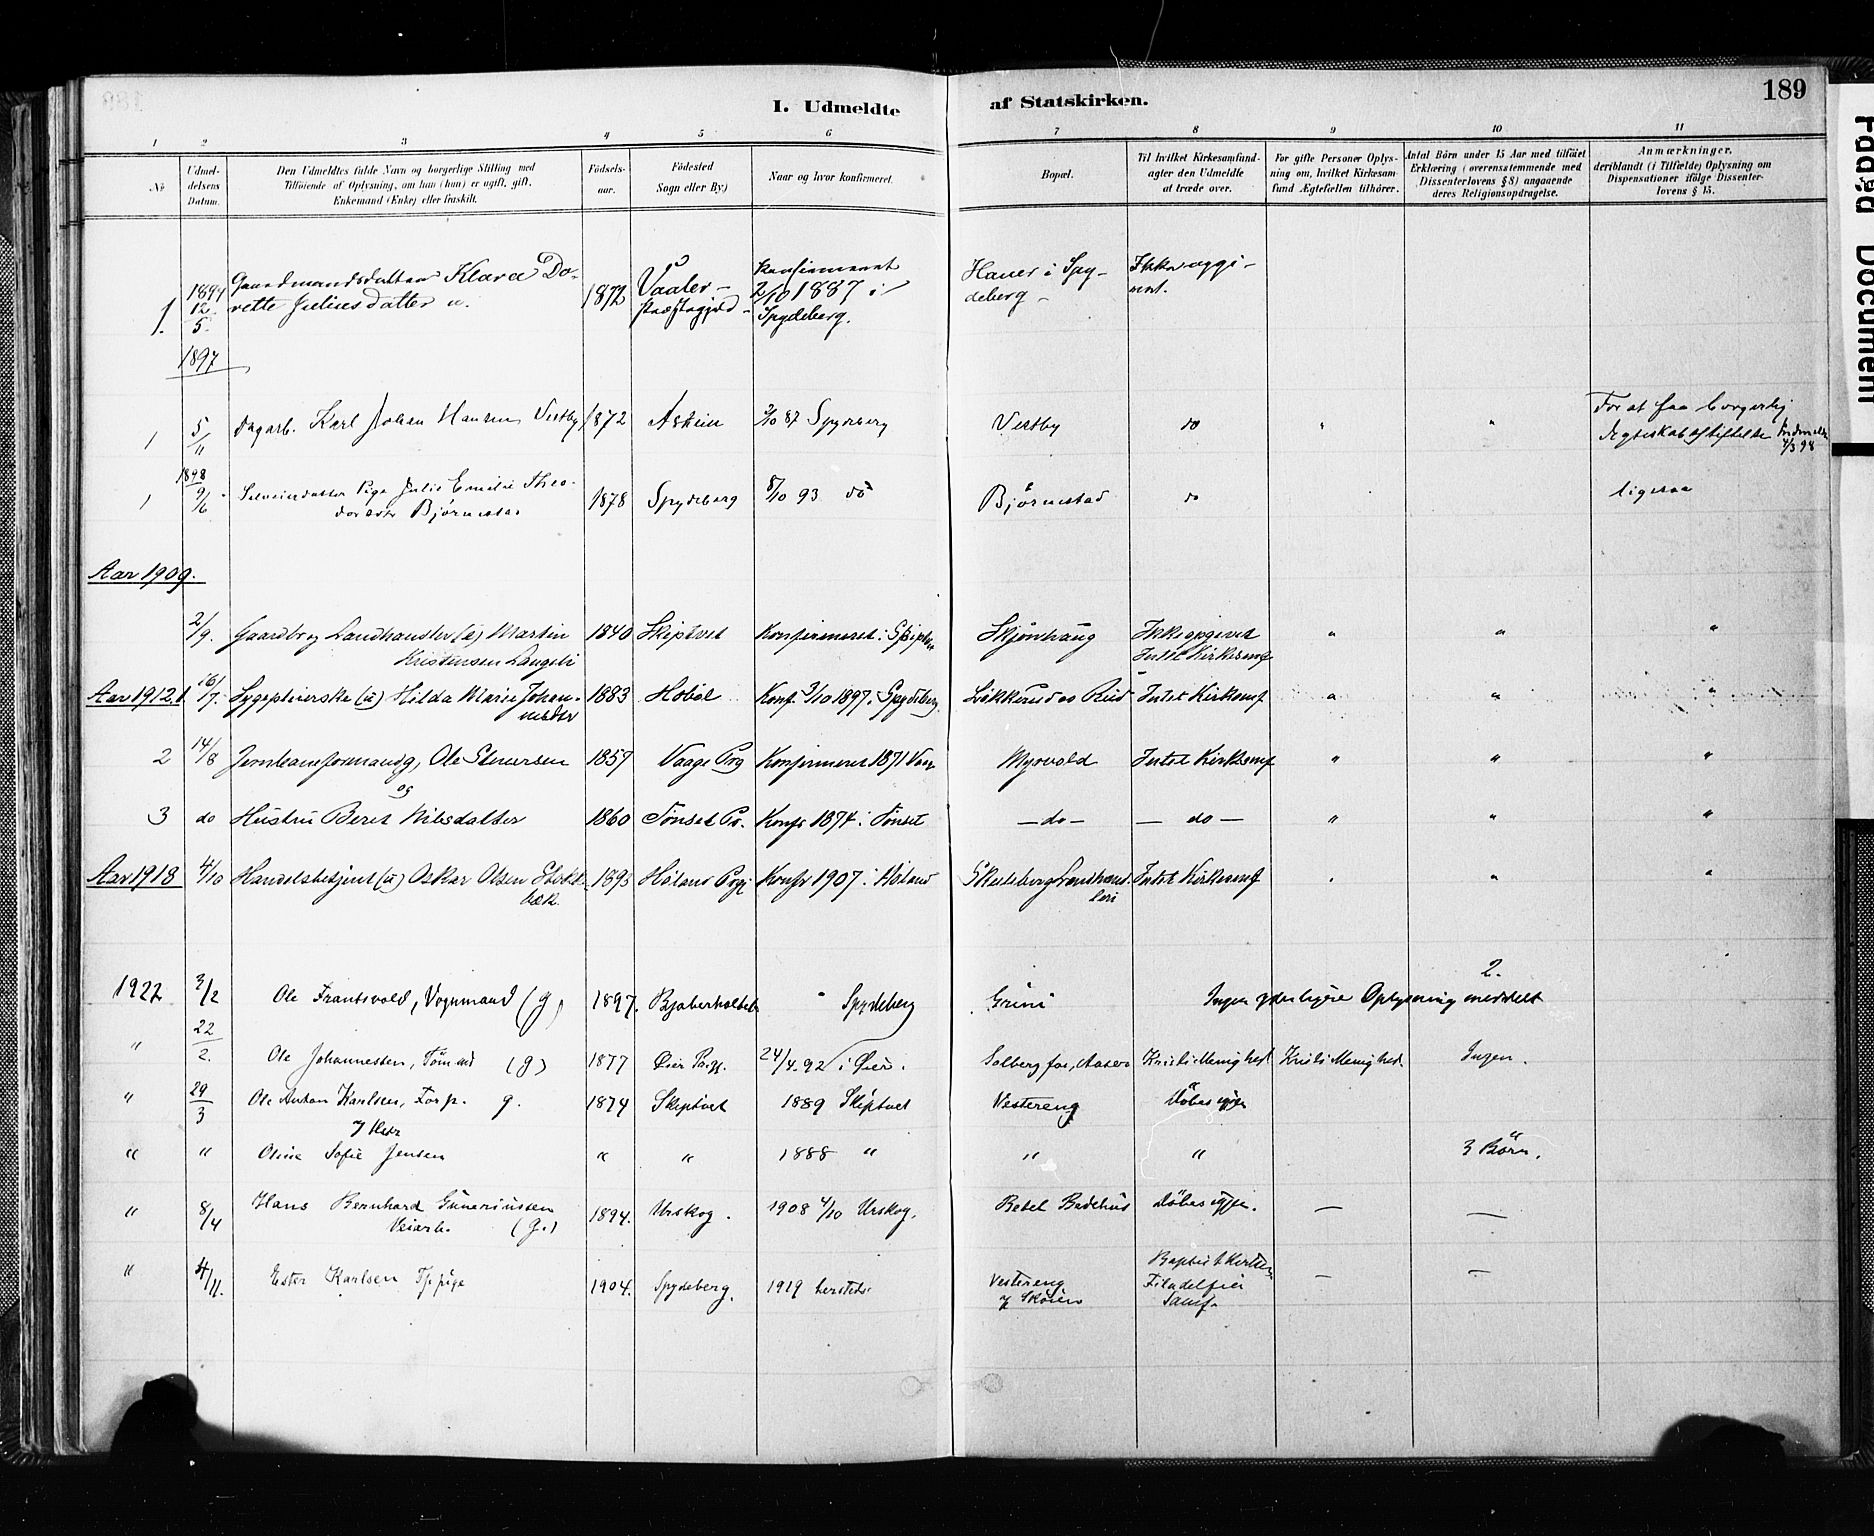 189
I. Udmeldte af Statskirken.
1 2 3 4 5 6 7 8 9 10 11
No
Udmeldelsens Datum.
Den Udmeldtes fulde Navn og borgerlige Stilling med
Tilföiende af Oplysning, om han (hun) er ugift, gift,
Enkemand (Enke) eller fraskilt.
Födselsaar.
Födested
Sogn eller By)
Naar og hvor konfirmeret.
Bopæl.
Til hvilket Kirkesamfund
agter den Udmeldte
at træde over.
For gifte Personer Oplysning
om, hvilket Kirkesamfund
Ægtefællen tilhörer.
Antal Börn under 15 Aar med tilföiet
Erklæring (overensstemmende med
Dissenterlovens § 8) angaaende
deres Religionsopdragelse.
Anmærkninger,
deriblandt (i Tilfælde) Oplysning om
Dispensationer ifölge Dissenterlovens
§ 15.
1. 12/5 Gaardmandsdatter Klara Dorette Juliusdatter u. 1872 Vaaler Præstegjæld konfirmeret 2/10 1887 i Spydeberg. i Spydeberg
1897
1 5/11 Dagarb. Karl Johan Hansen Vestby 1872 Askim 2/10 87 Spydeberg Vestby do " " For at faa borgerlig Ægteskabsstiftelse
1898
1 9/6 Pige Julie Emilie Theodorsdtr Bjørnestad 1878 Spydeberg 8/10 93 do Bjørnestad do ligesaa
Aar 1909.
2/9. Gaardbr og Landhandler (u) Martin Kristensen Langeli 1840 Skiptvet Konfirmeret i Skiptvet Skjønhaug Ikke opgivet Intet Kirkesamf " " "
Aar 1912. 1 16/7. Sygepleierske (u) Hilda Marie Johannesdtr 1883 Hobøl Konf. 3/10 1897 i Spydeberg. Intet Kirkesamf " " "
2 14/8 Jernbaneformand g, Ole Stenersen 1857 Vaage Prg Konfirmeret 1871 Myrvold Intet Kirkesamf " " "
og
3 do Hustru Beret Nilsdatter 1860 Tønset Pr. Konfr 1874 i Tønset — do — — do — " " "
Aar 1918 4/10 Handelsbetjent (u) Oskar Olsen 1893 Høland Prgj Konfr 1907 i Høland Intet Kirkesamf " " "
1922 3/2 Ole Frantsvold, Vognmand (g) 1897. " Spydeberg Grini 2. Ingen yderligere Oplysning meddelt
" 22/2. Ole Johannessen, Tömmd (g) 1877 Øier Prgj. 24/4. 92 i Øier. Solbergfos, Kristi Menighed Kristi Menighed. Ingen.
" 29/3 Ole Anton Karlsen, Forp. g. 1874 Skiptvet 1889 Skiptvet Vestereng Döbes igjen
" " Oline Sofie Jensen " " 1888 " " " 3 Börn.
" 8/4 Hans Bernhard Gunariussen Veiarb. (g.) 1894. Urskog. 1908 4/10 Urskog. Betel Bedehus Döbes igjen. — —
" 4/11. Ester Karlsen Tj. pige 1904. Spydeberg. 1919 hersteds. Vestereng Baptistkirken Filadelfia Samf. — —
Faaed Document